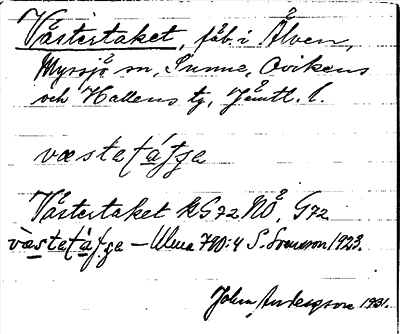 Västertaket, fäb. i Ålven,
Myssjö sn, Sunne, Ovikens
och Hallens tg, Jämtl. l.
væstatáʃɡa
Västertaket KG72 NÖ, G72
væstatáʃɡa – Ulma 790:4 S. Svensson 1923.
John Andersson 1931.